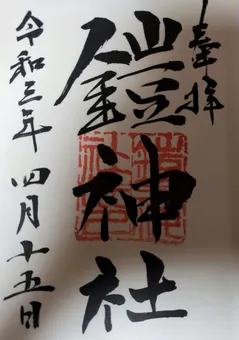 奉拝
鎧神社
令和三年 四月十五日